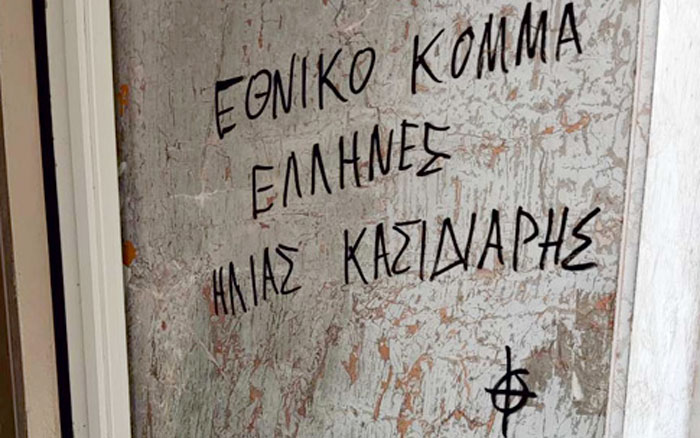 ΕΘΝΙΚΟ ΚΟΜΜΑ
ΕΛΛΗΝΕΣ
ΗΛΙΑΣ ΚΑΣΙΔΙΑΡΗΣ